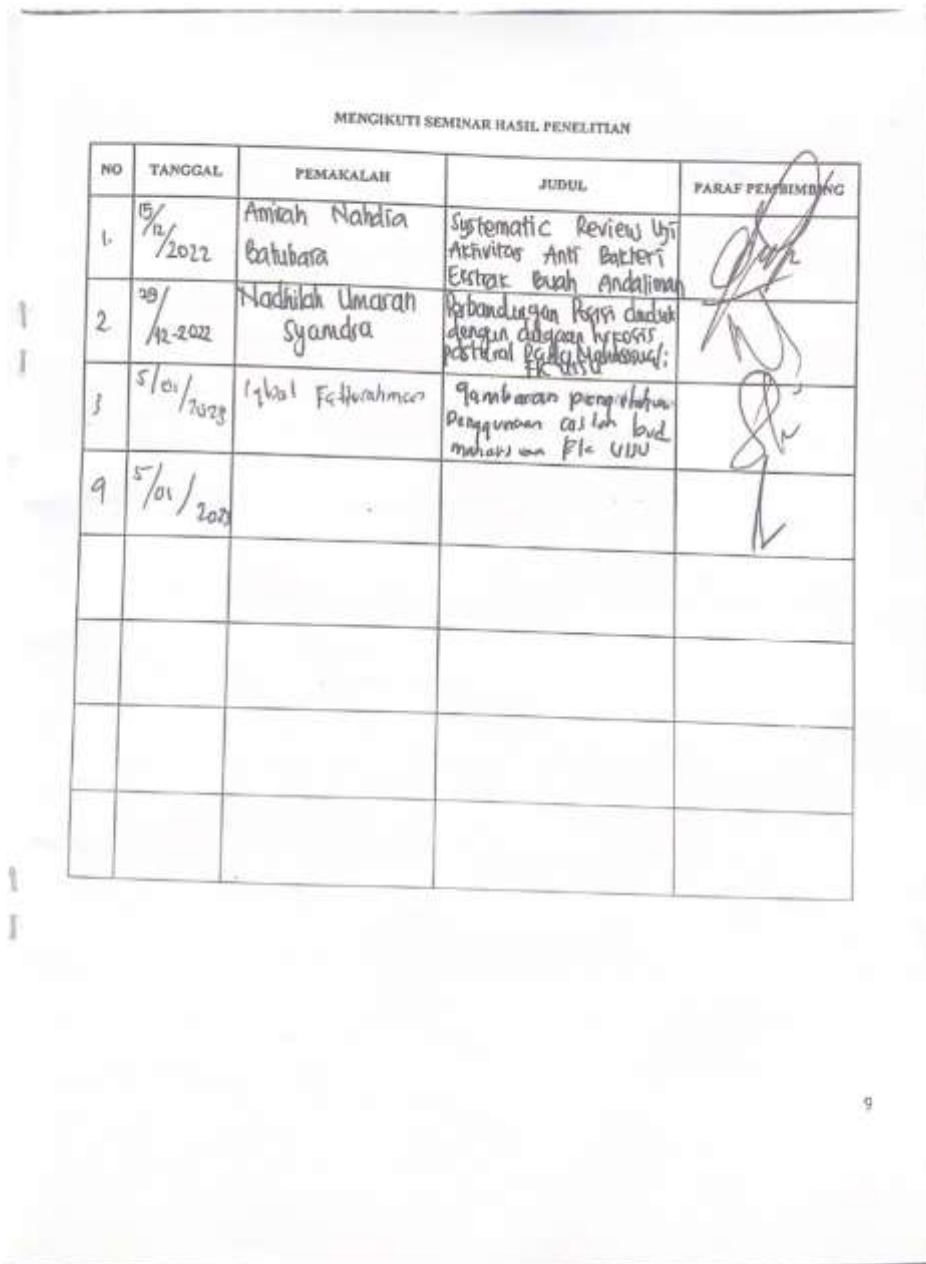 MENGIKUTI SEMINAR HASIL PENELITIAN
NO TANGGAL PEMAKALAH JUDUL PARAF PEMBIMBING
1. 15/12/2022 Amirah Nahdia Batubara Systematic Review Uji
Aktivitas Anti Bakteri
Ekstrak Buah Andaliman
2 29/12-2022 Nadhilah Umaran Syamdra Perbandingan Posisi duduk
dengan
postural Pada
FK UISU
3 5/01/2023 Iqbal Fatturahman gambaran
Penggunaan
FK UISU
4 5/01/2023
9